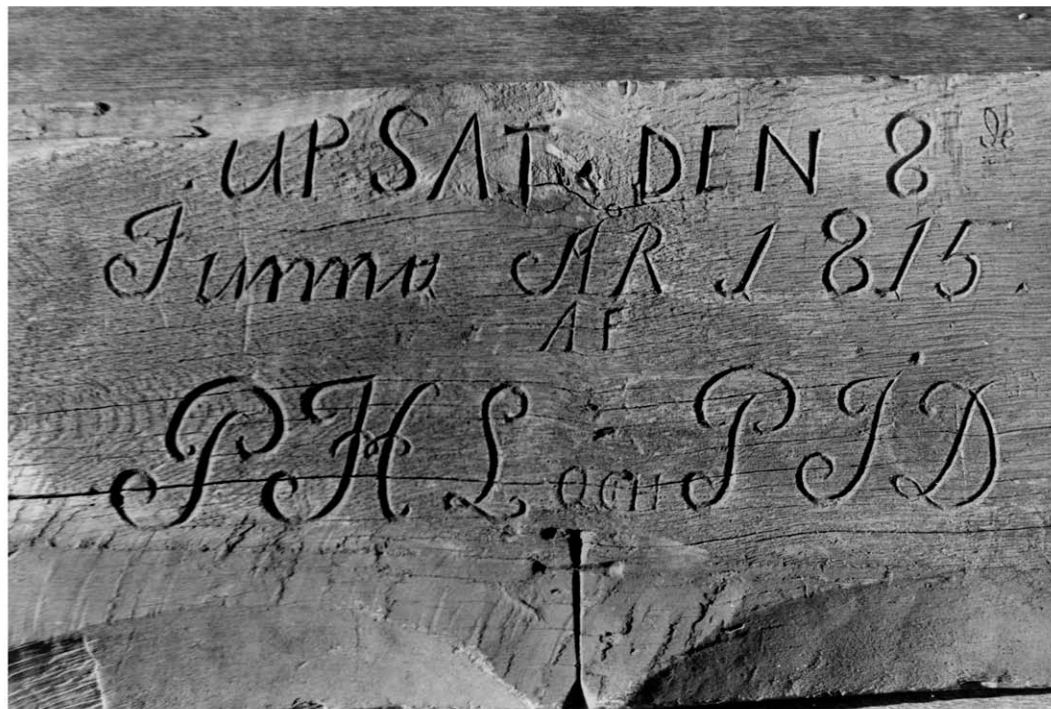 UPSAT. DEN 8 de
Junno AR 1815.
AF
PHL OCH PID